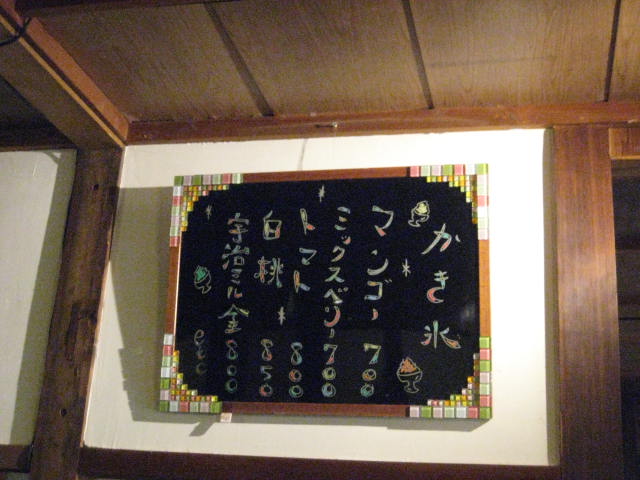 かき氷
マンゴー 700
ミックスベリー 700
トマト 800
白桃 850
宇治ミルク金 800